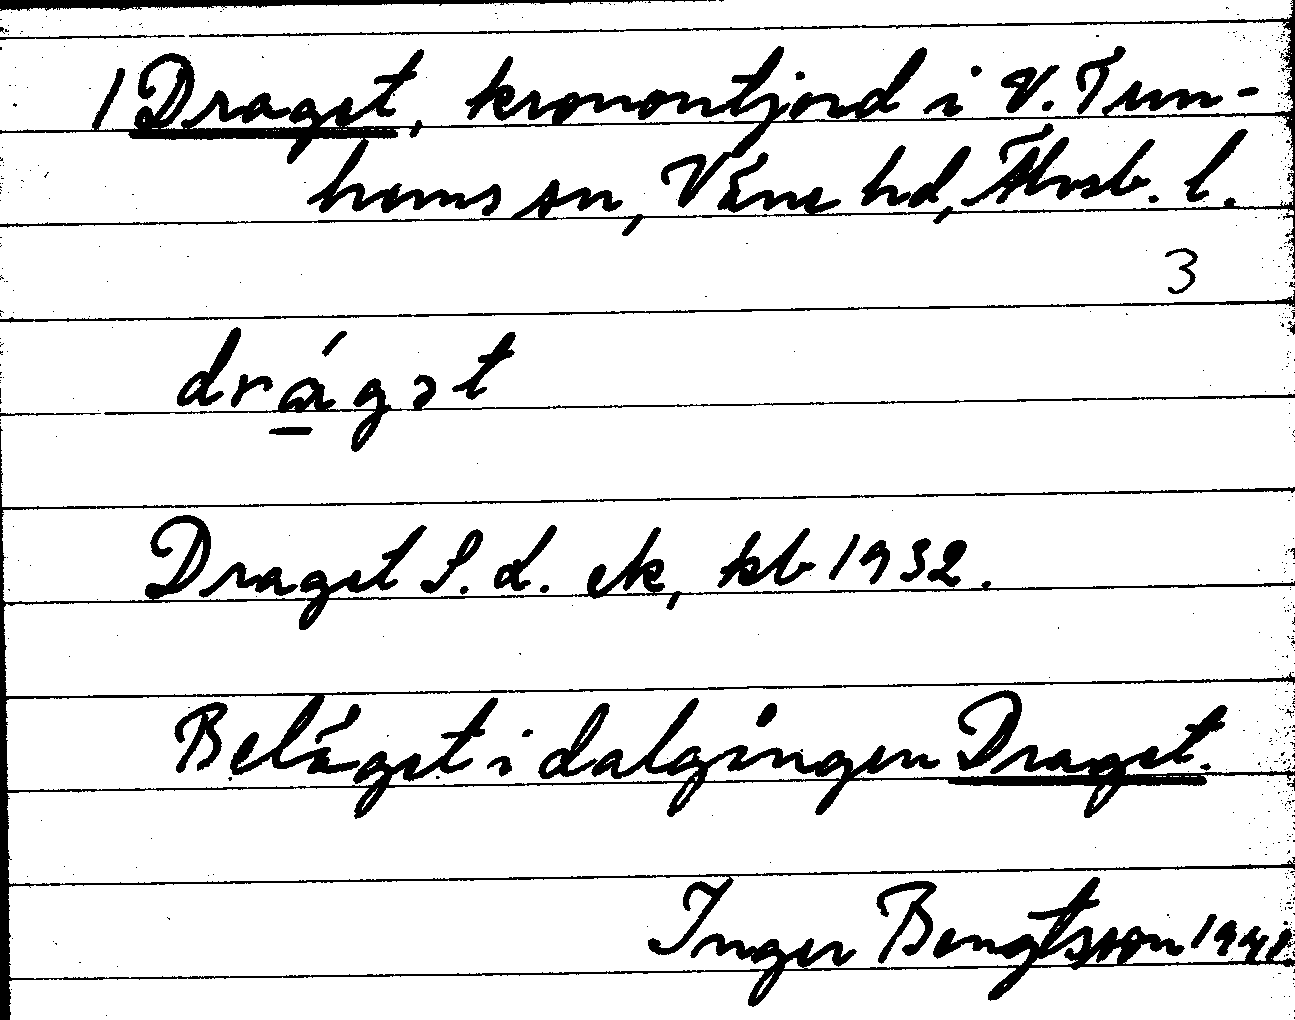 1 Draget, kronontjord i V. Tun-
hems sn, Väne hd, Älvsb. l.
3
drágət
Draget S. d. ek, kb 1932.
Beläget i dalgången Draget.
Inger Bengtsson 1941.